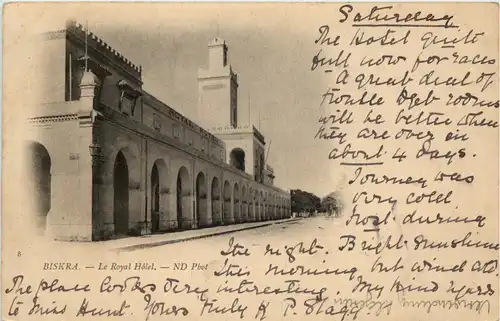 Saturday
The Hotel quite
full now for races
A great deal of
trouble abt rooms
will be better when
they are over in
about 4 days.
Journey was
very cold.
Frost during
the night. Bright sunshine
this morning but wind cold
The place looks very interesting. My kind regards
to Miss Hunt. Yours truly H P. Stagg
ROYAL HOTEL
8
BISKRA. — Le Royal Hôtel. — ND Phot